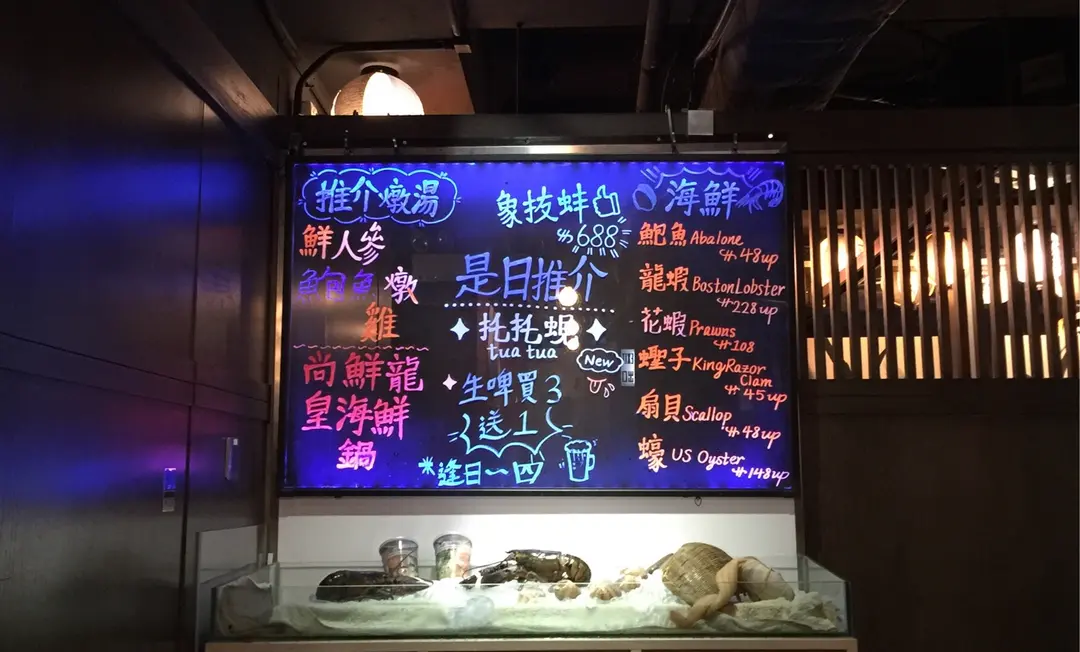 推介燉湯
鮮人參
鮑魚燉
雞
尚鮮龍
皇海鮮
鍋
象拔蚌
$688
是日推介
扥扥蜆
tua tua
New
生啤買3
送1
*逢日一四
海鮮
鮑魚 Abalone
$48up
龍蝦 Boston Lobster
$228up
花蝦 Prawns
$108
蟶子 King Razor
Clam
$45up
扇貝 Scallop
$48up
蠔 US Oyster
$148up